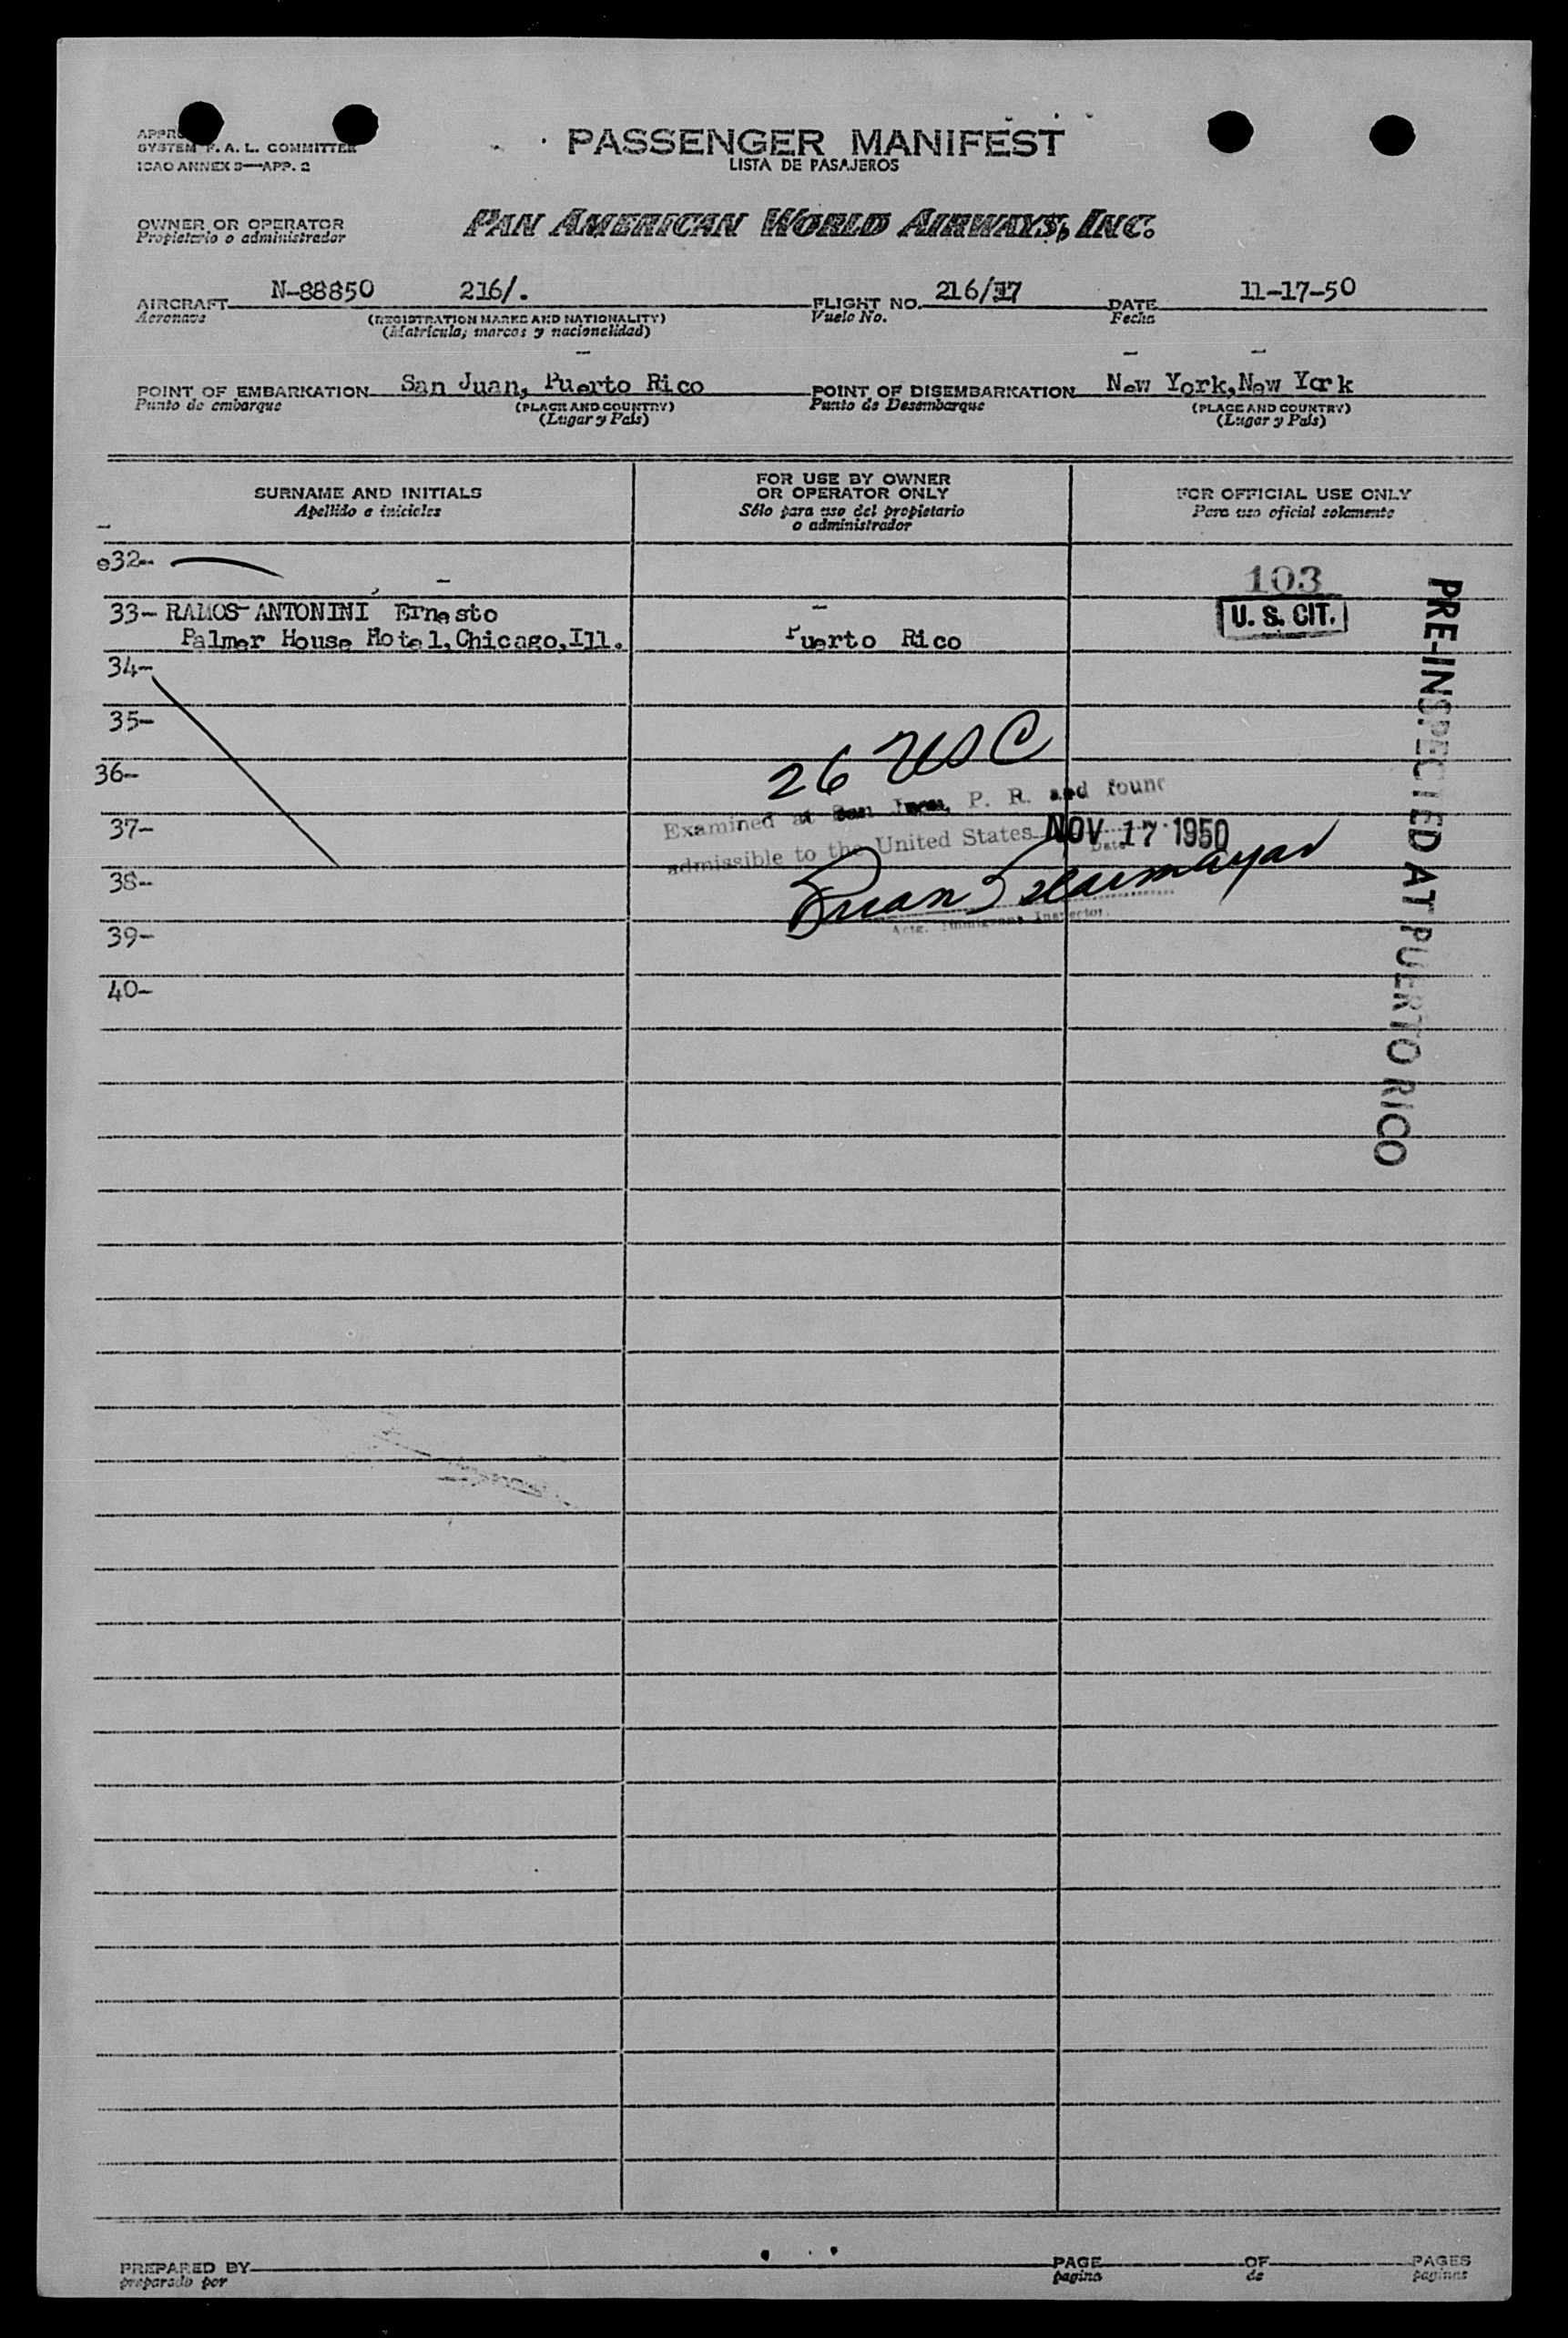 SYSTEM F. A. L. COMMITTEE
ICAO ANNEX 9—APP. 2
PASSENGER MANIFEST
LISTA DE PASAJEROS
OWNER OR OPERATOR
Propietario o administrador
PAN AMERICAN WORLD AIRWAYS, INC.
AIRCRAFT N-88850 216/. FLIGHT NO. 216/17 DATE 11-17-50
Aeronave (REGISTRATION MARKS AND NATIONALITY) Vuelo No. Fecha
(Matricula, marcas y nacionalidad)
POINT OF EMBARKATION San Juan, Puerto Rico POINT OF DISEMBARKATION New York, New York
Punto de embarque (PLACE AND COUNTRY) Punto de Desembarque (PLACE AND COUNTRY)
(Lugar y País) (Lugar y País)
SURNAME AND INITIALS
Apellido e iniciales
FOR USE BY OWNER
OR OPERATOR ONLY
Sólo para uso del propietario
o administrador
FOR OFFICIAL USE ONLY
Para uso oficial solamente
32-
103
33- RAMOS-ANTONINI Ernesto
U. S. CIT.
Palmer House Hotel, Chicago, Ill. Puerto Rico
34-
35-
36-
26 USC
37-
Examined at San Juan, P. R. and found
admissible to the United States NOV 17 1950
Date
38-
Juan
Actg. Immigrant Inspector.
39-
40-
PRE-INSPECTED AT PUERTO RICO
PREPARED BY PAGE OF PAGES
preparado por pagina de paginas